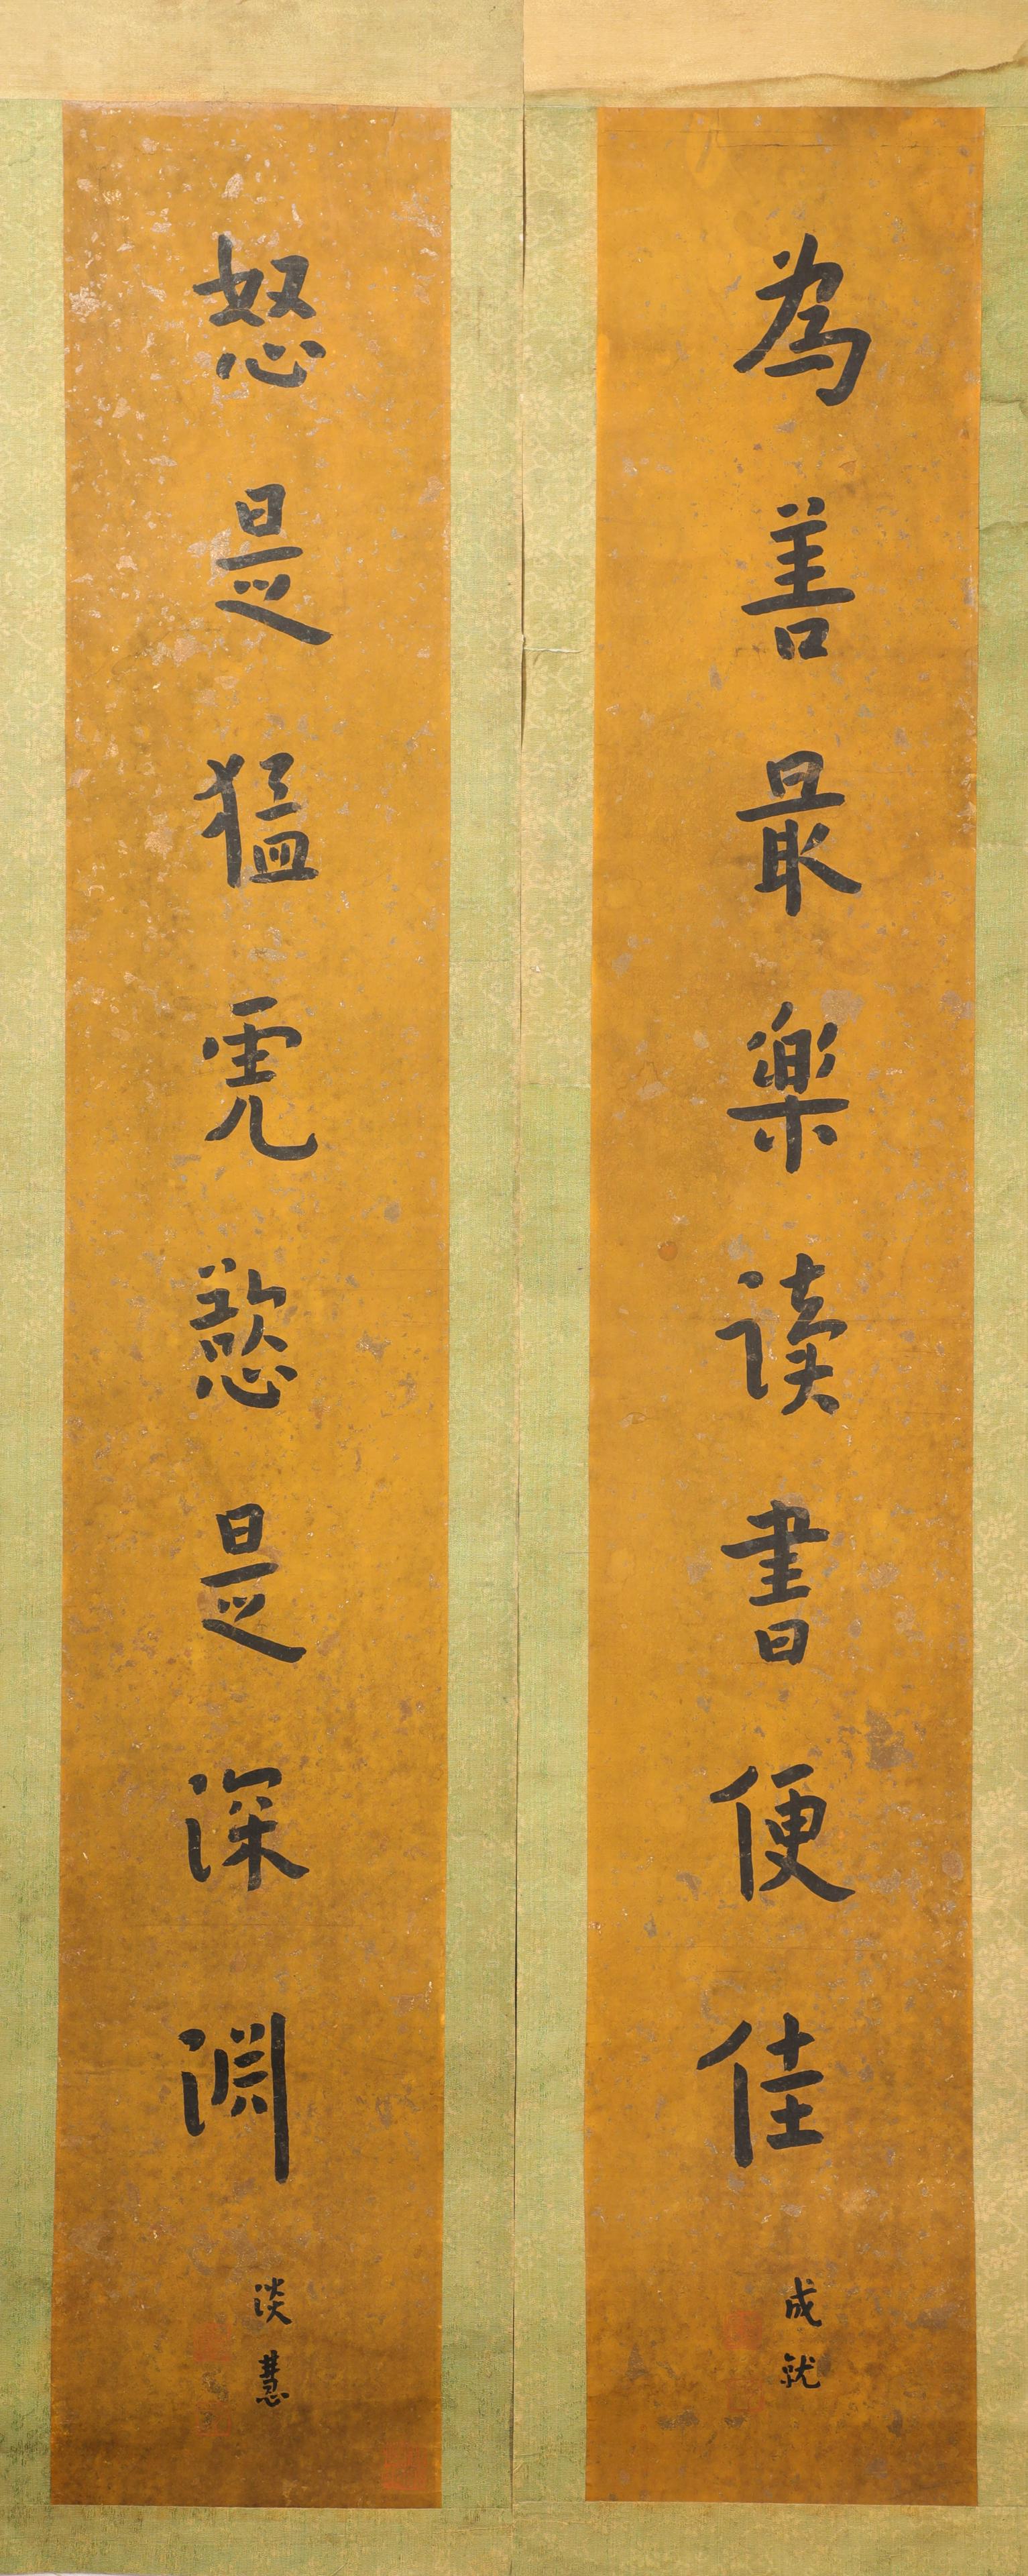 為善最樂读書便佳
成就
怒是猛虎慾是深淵
淡慧